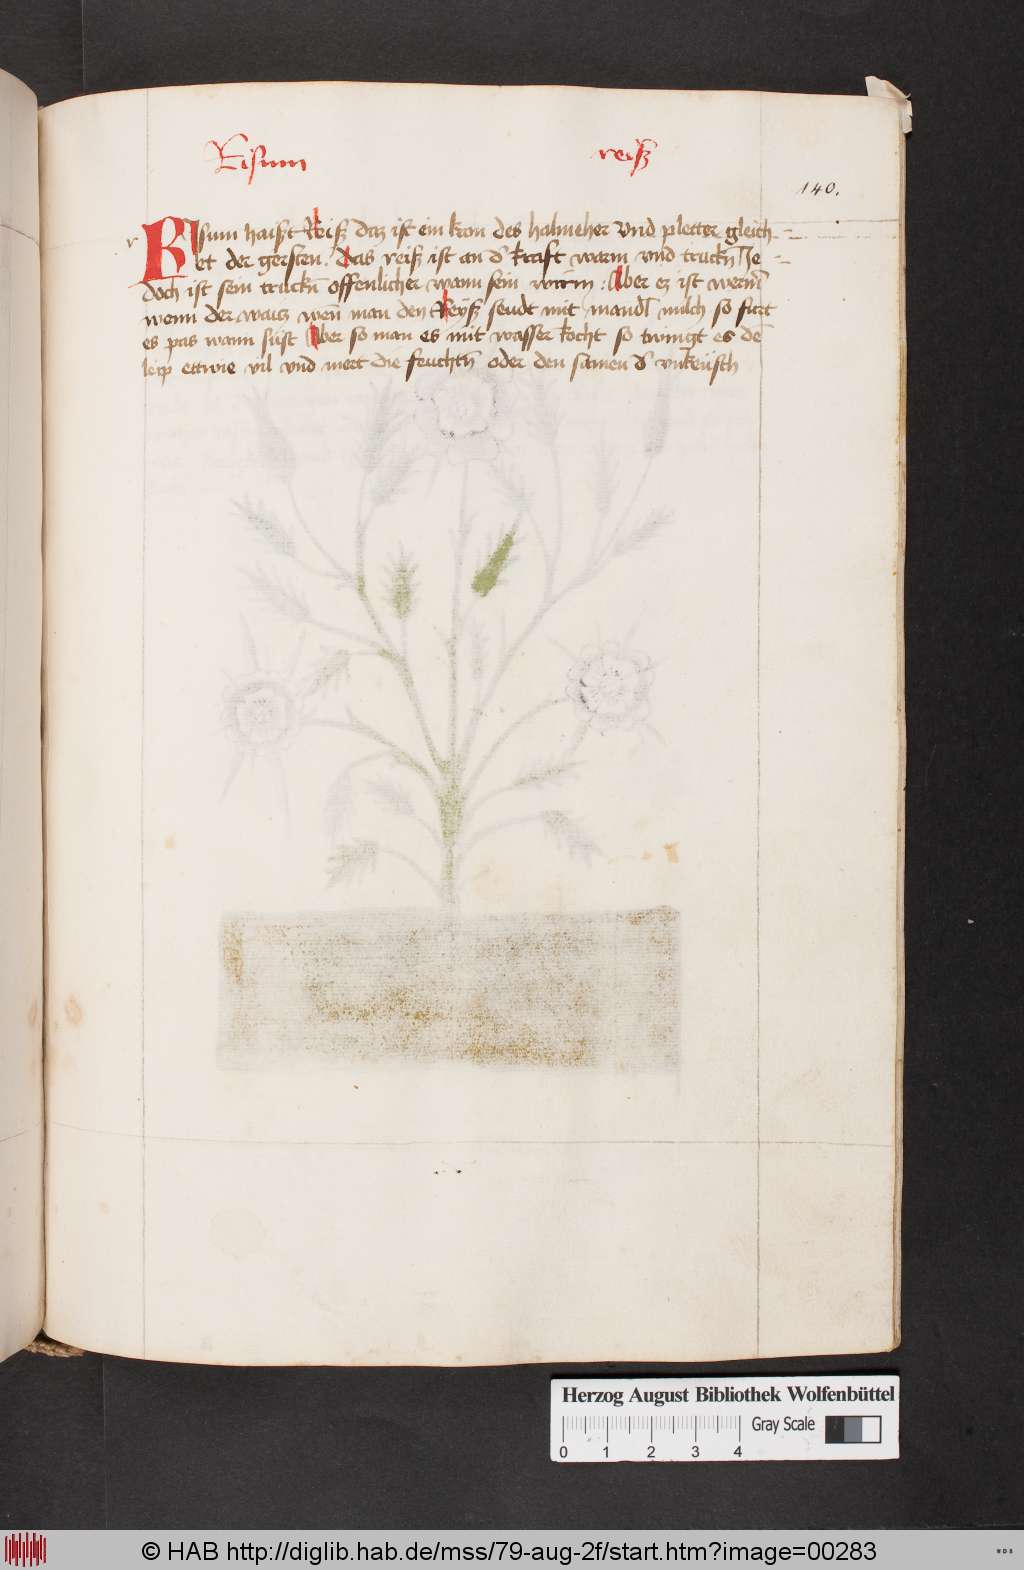 Risum reiß
140.
r
RIsum haißt Reiß daz ist ein kron des halmeher vnd pletter gleich
et der gersten. Das reiß ist an d̄ kraft warm vnd truckn̄ Je
doch ist sein truckn̄ offenlicher wann sein wirm. Aber ez ist werm̄
wenn der waitz wen̄ man den Reyß seudt mit mandl milch so furt
es pas wann süst Aber so man es mit wasser kocht so twingt es de̅
leip ettwie vil vnd mert die feuchtn̄ oder den samen d̄ vnkeüsch
Herzog August Bibliothek Wolfenbüttel
Gray Scale
0 1 2 3 4
© HAB http://diglib.hab.de/mss/79-aug-2f/start.htm?image=00283